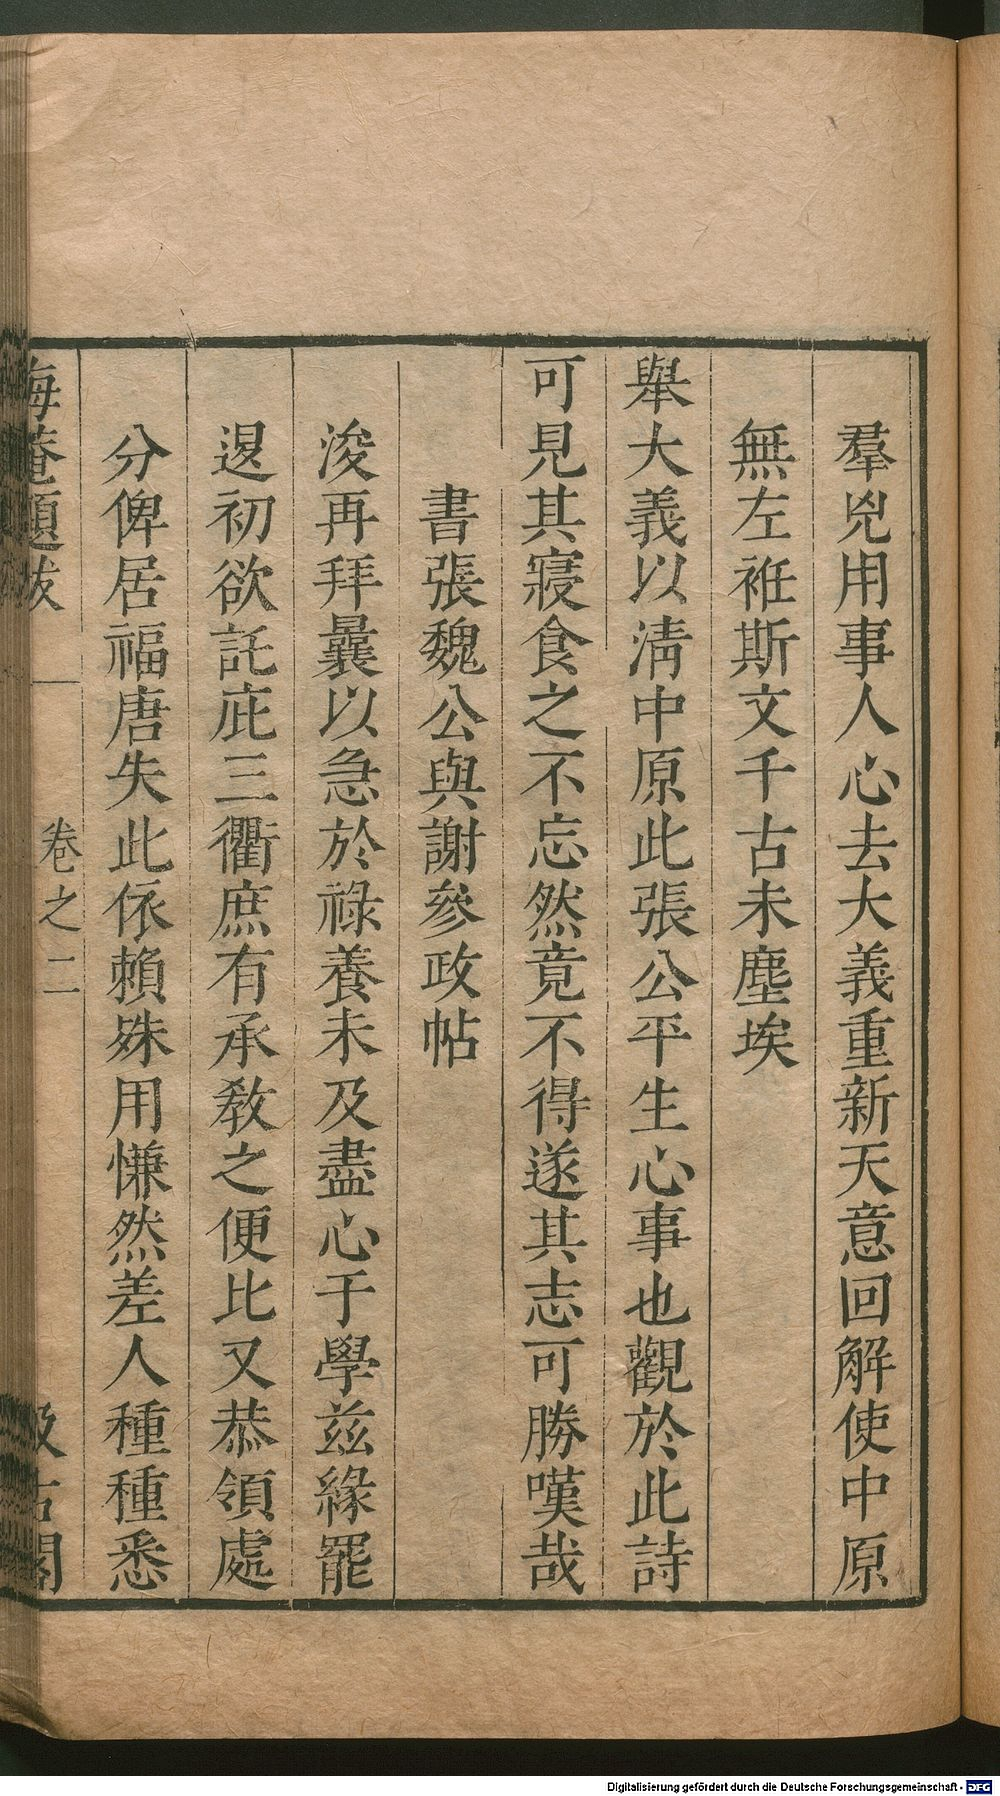 羣兇用事人心去大義重新天意回解使中原
無左袵斯文千古未塵埃
舉大義以清中原此張公平生心事也觀於此詩
可見其寢食之不忘然竟不得遂其志可勝嘆哉
書張魏公與謝參政帖
浚再拜曩以急於祿養未及盡心于學兹緣罷
退初欲託庇三衢庶有承敎之便比又恭領處
分俾居福唐失此依賴殊用慊然差人種種悉
海菴題跋
卷之二
汲古閣
Digitalisierung gefördert durch die Deutsche Forschungsgemeinschaft - DFG